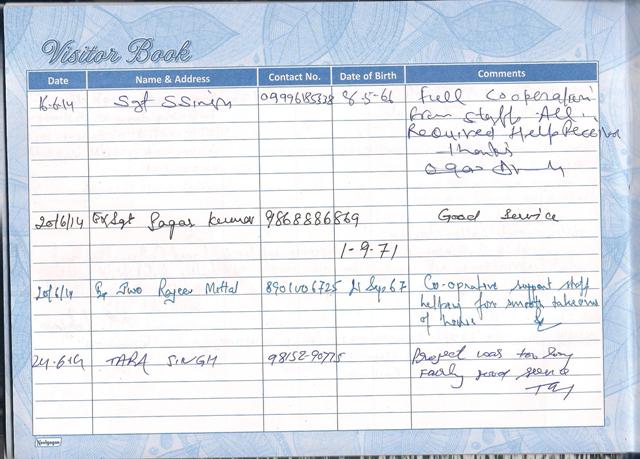 Visitor Book
Date Name & Address Contact No. Date of Birth Comments
16.6.14 Sgt S Singh 09996185338 8-5-66 Full Cooperation
from staff. All
Required Help Received
Thanks
20/6/14 Ex Sgt Sagar Kumar 9868886869 Good Service
1-9-71
20/6/14 Ex JWO Rajeev Mittal 8901006725 21 Sep 67 Co-oprative support staff
helping for smooth takeover
of house
24.6.14 TARA SINGH 98152-90775 Project was too long
Fairly good service
Neelgagan